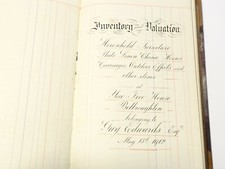 Inventory and Valuation
of
Household Furniture
Plate Linen China Horses
Carriages Outdoor Effects and
other items
at
Yew Tree House
Belbroughton
belonging to
Guy Edwards Esqr
May 13th 1912